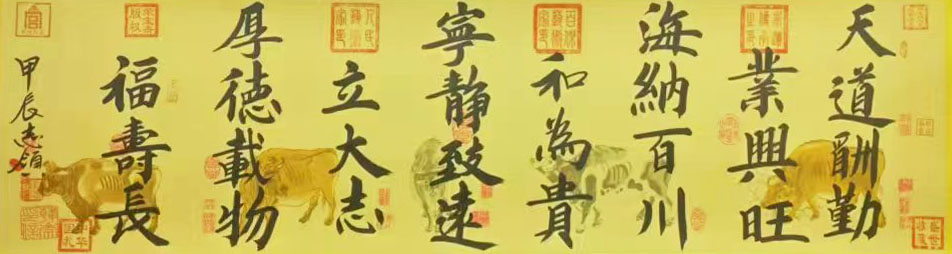 天道酬勤
業興旺
海納百川
和為貴
寧靜致遠
立大志
厚德載物
福壽長
甲辰志領